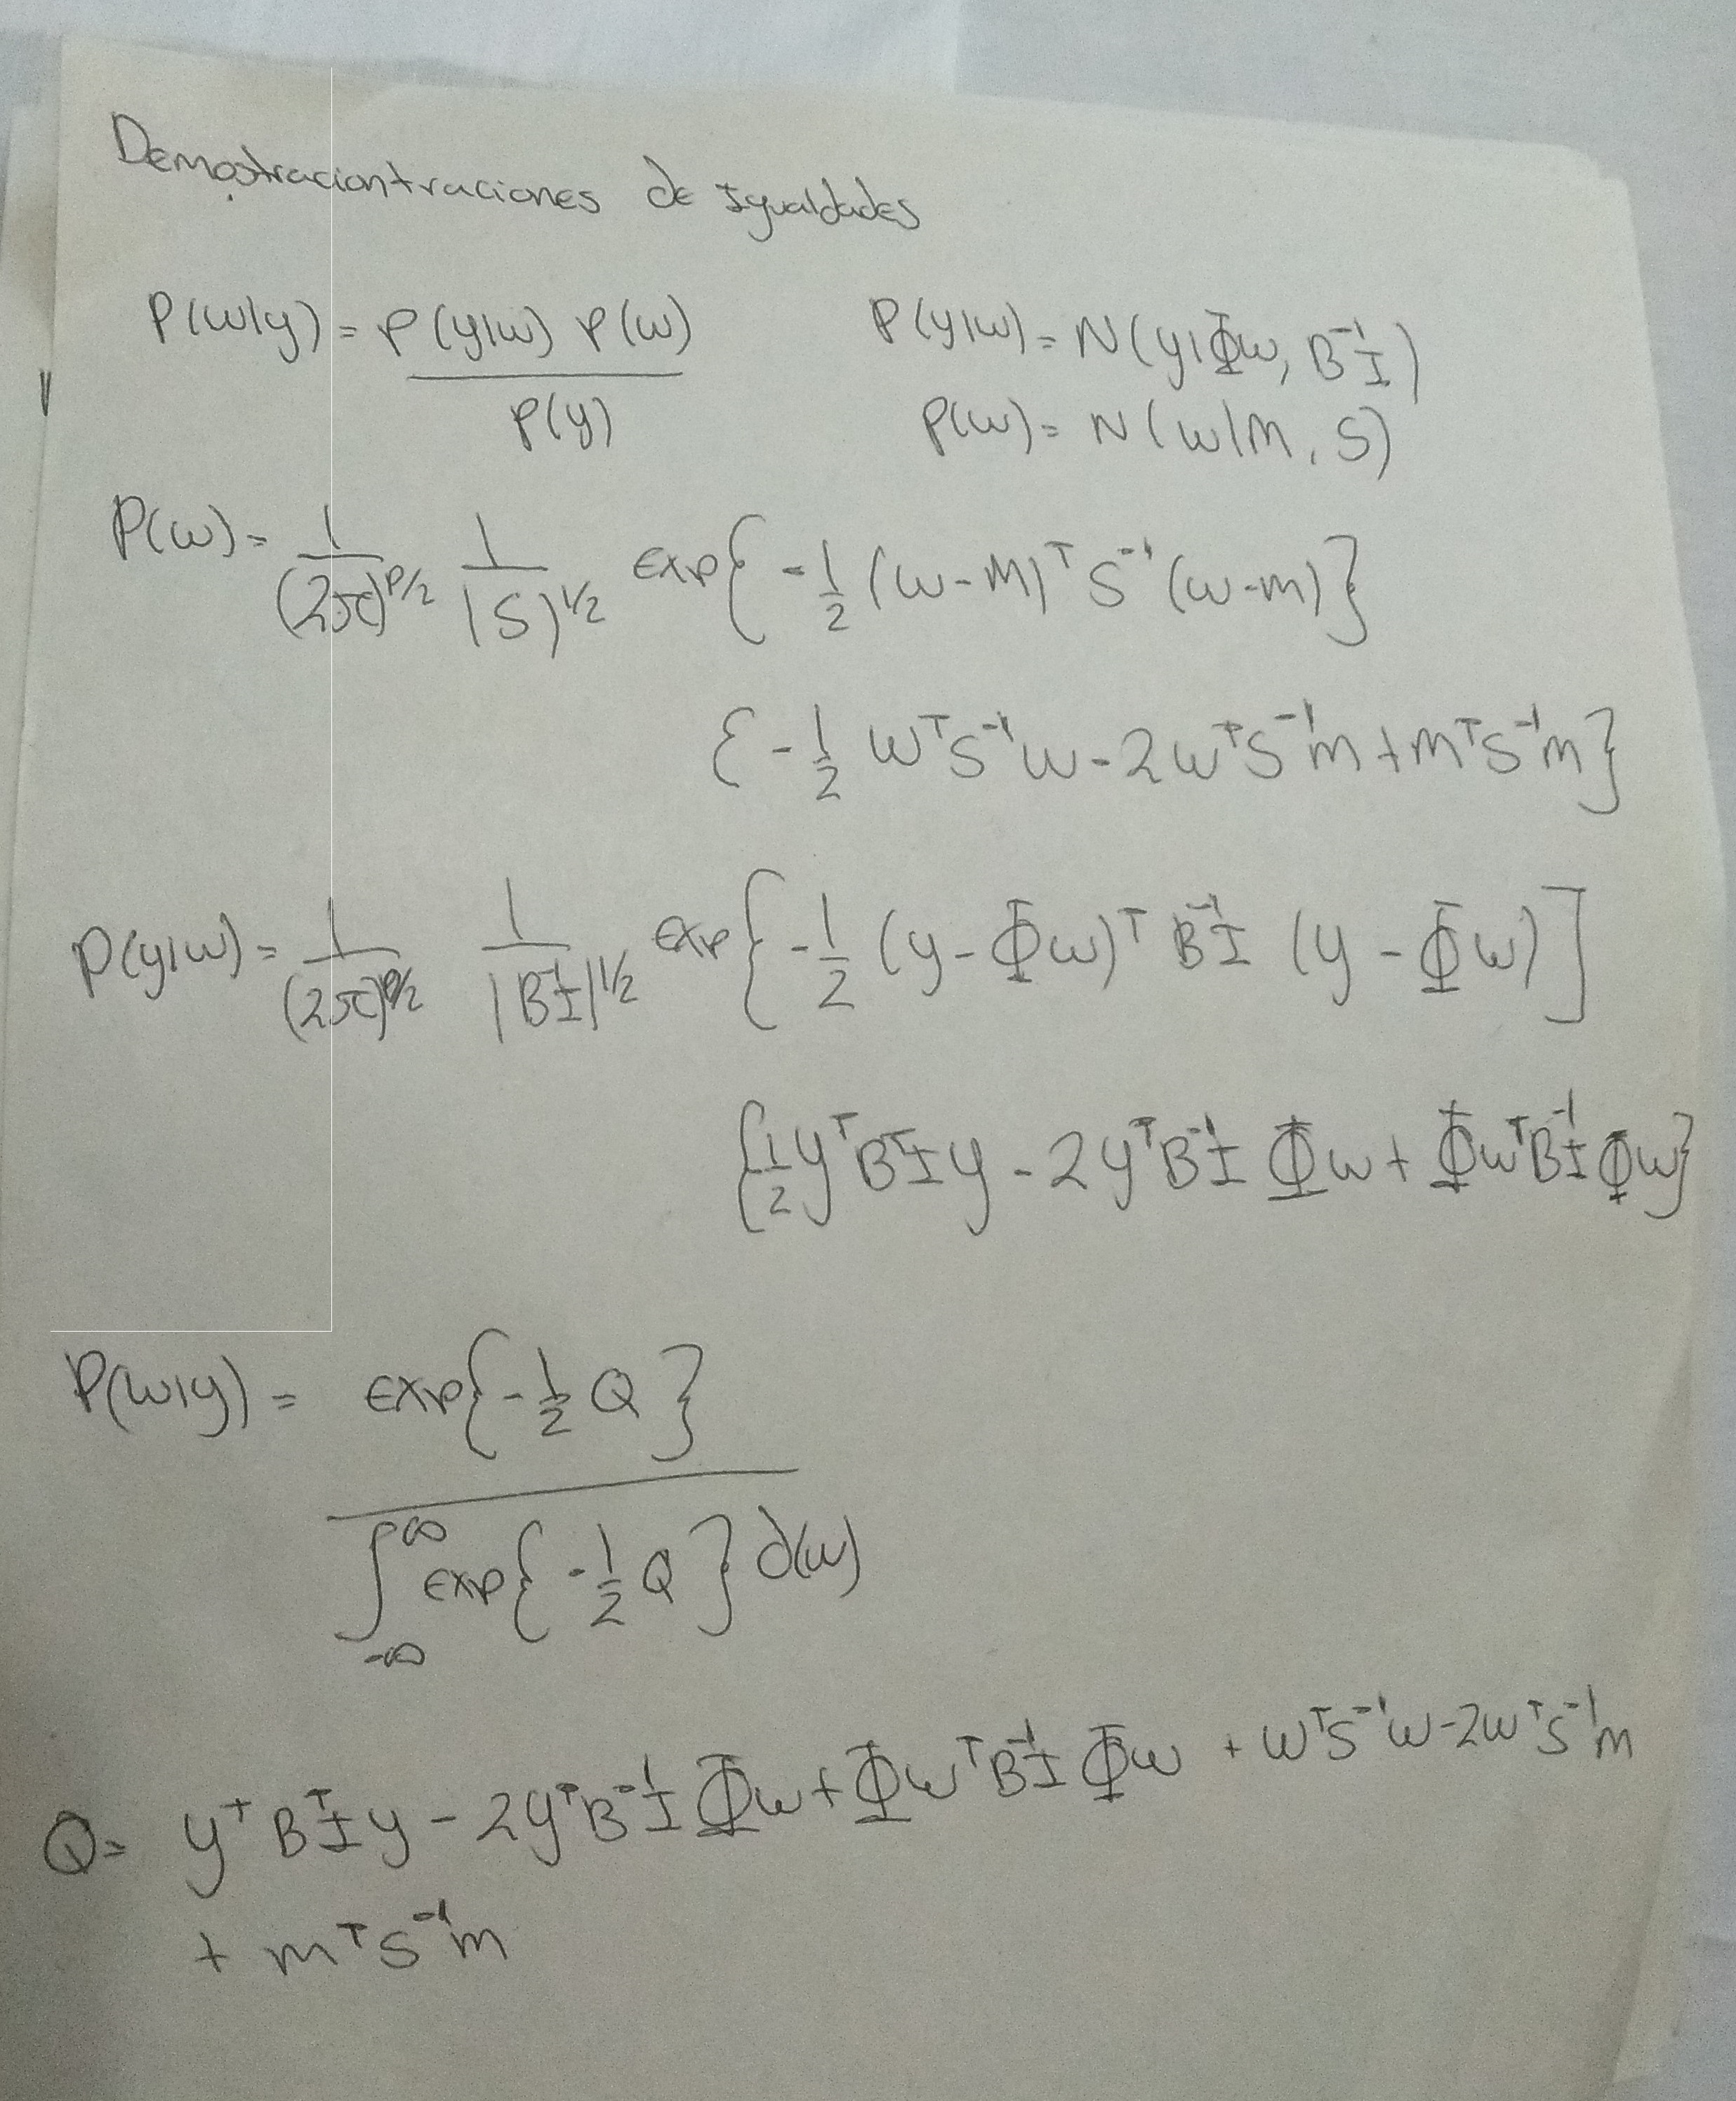 Demostraciontraciones de Igualdades
P(w|y) = P(y|w) P(w) / P(y)
P(y|w) = N(y|Φw, B⁻¹I)
P(w) = N(w|m, S)
P(w) = 1/(2π)^{P/2} 1/|S|^{1/2} exp{ -1/2 (w-m)ᵀ S⁻¹ (w-m)}
{ -1/2 wᵀS⁻¹w - 2wᵀS⁻¹m + mᵀS⁻¹m}
P(y|w) = 1/(2π)^{P/2} 1/|B⁻¹I|^{1/2} exp{ -1/2 (y-Φw)ᵀ B⁻¹I (y-Φw)]
{-1/2 yᵀB⁻¹Iy - 2yᵀB⁻¹IΦw + ΦwᵀB⁻¹IΦw}
P(w|y) = exp{-1/2 Q} / ∫_{-∞}^{∞} exp{-1/2 Q} d(w)
Q = yᵀB⁻¹Iy - 2yᵀB⁻¹IΦw + ΦwᵀB⁻¹IΦw + wᵀS⁻¹w - 2wᵀS⁻¹m
+ mᵀS⁻¹m